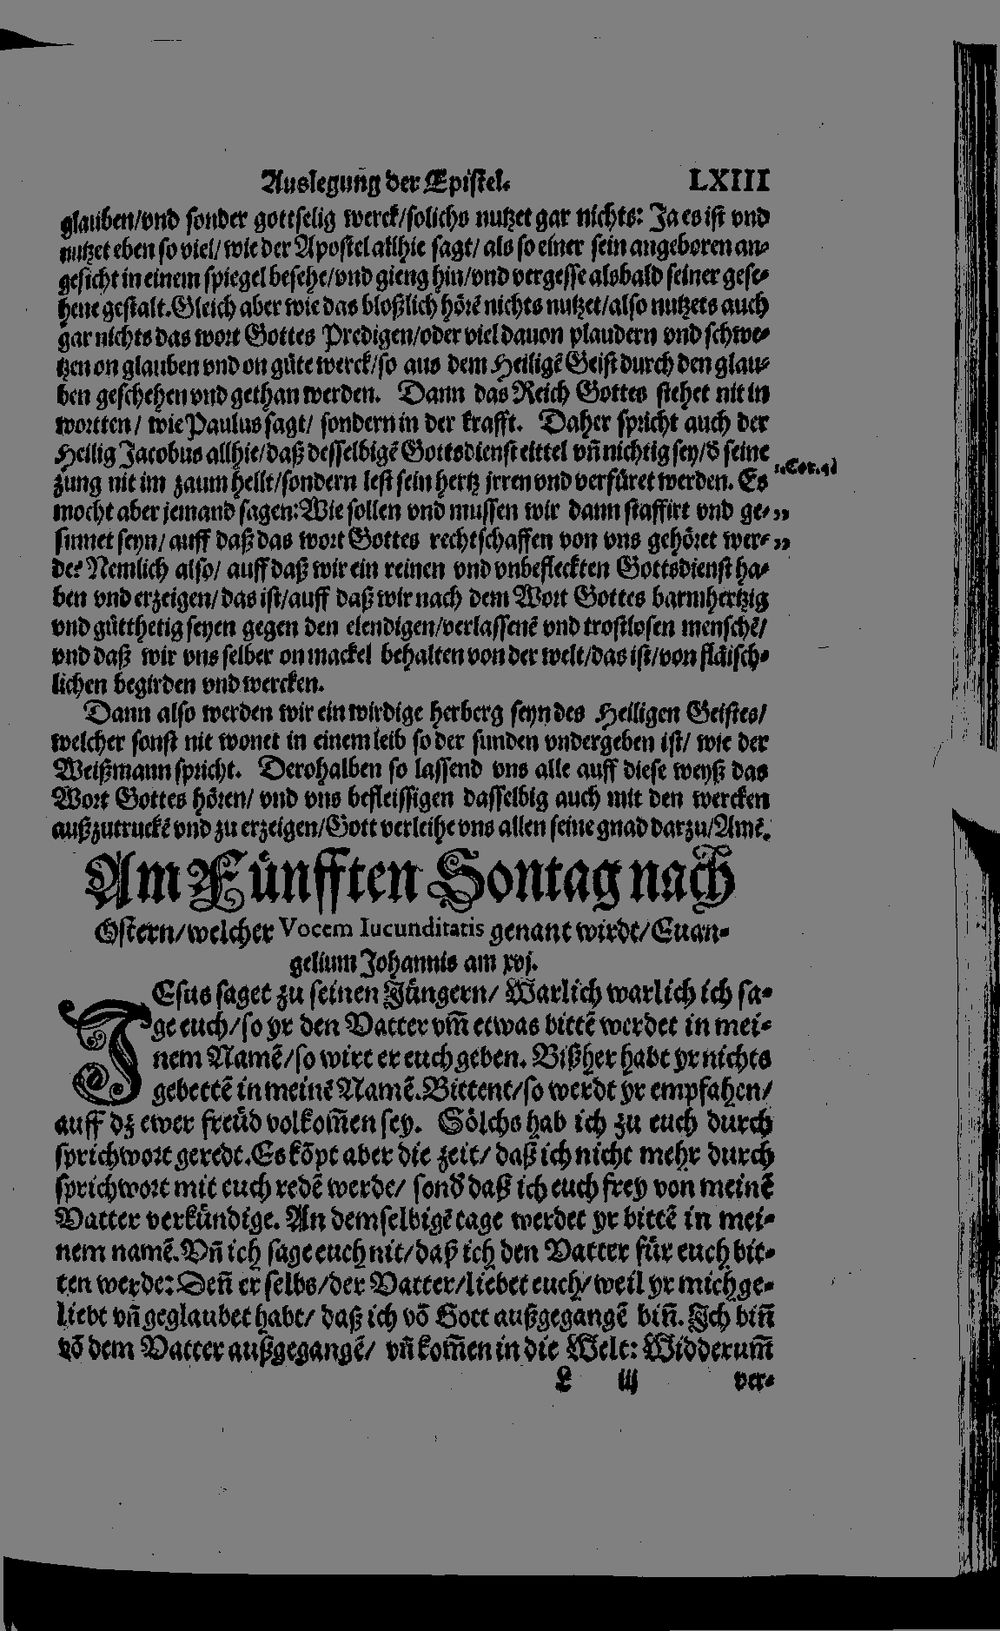 Auslegung der Epistel. LXIII
glauben/vnd sonder gottselig werck/solichs nutzet gar nichts: Ja es ist vnd
nutzet eben so viel/ wie der Apostel allhie sagt/ als so einer sein angeboren an-
gesicht in einem spiegel besehe/vnd gieng hin/vnd vergesse alsbald seiner gese-
hene gestalt. Gleich aber wie das bloßlich hörē nichts nutzet/also nutzets auch
gar nichts das wort Gottes Predigen/oder viel dauon plaudern vnd schwe-
tzen on glauben vnd on gůte werck/so aus dem Heiligē Geist durch den glau-
ben geschehen vnd gethan werden. Dann das Reich Gottes stehet nit in
wortten/ wie Paulus sagt/ sondern in der krafft. Daher spricht auch der
Heilig Jacobus allhie/daß desselbigē Gottsdienst eittel vñ nichtig sey/d̄ seine
zung nit im zaum hellt/sondern lest sein hertz jrren vnd verfüret werden. Es
1. Cor. 4
mocht aber jemand sagen: Wie sollen vnd mussen wir dann staffirt vnd ge- „
sinnet seyn/ auff daß das wort Gottes rechtschaffen von vns gehöret wer- „
de? Nemlich also/ auff daß wir ein reinen vnd vnbefleckten Gottsdienst ha-
ben vnd erzeigen/ das ist/auff daß wir nach dem Wort Gottes barmhertzig
vnd gůtthetig seyen gegen den elendigen/verlassenē vnd trostlosen menschē/
vnd daß wir vns selber on mackel behalten von der welt/das ist/von fläisch-
lichen begirden vnd wercken.
Dann also werden wir ein wirdige herberg seyn des Heiligen Geistes/
welcher sonst nit wonet in einem leib so der sunden vndergeben ist/ wie der
Weißmann spricht. Derohalben so lassend vns alle auff diese weyß das
Wort Gottes hören/ vnd vns befleissigen dasselbig auch mit den wercken
außzutruckē vnd zu erzeigen/Gott verleihe vns allen seine gnad darzu/Amē.
Am Fünfften Sontag nach
Ostern/welcher Vocem Iucunditatis genant wirdt/Euan-
gelium Johannis am xvj.
JEsus saget zu seinen Jüngern/ Warlich warlich ich sa-
ge euch/so yr den Vatter vm̄ etwas bittē werdet in mei-
nem Namē/so wirt er euch geben. Bißher habt yr nichts
gebettē in meinē Namē. Bittent/so werdt yr empfahen/
auff dz ewer freüd volkom̄en sey. Sölchs hab ich zu euch durch
sprichwort geredt. Es kōpt aber die zeit/ daß ich nicht mehr durch
sprichwort mit euch redē werde/ sond̄ daß ich euch frey von meinē
Vatter verkündige. An demselbigē tage werdet yr bittē in mei-
nem namē. Vñ ich sage euch nit/daß ich den Vatter für euch bit-
ten werde: Deñ er selbs/der Vatter/liebet euch/ weil yr mich ge-
liebt vñ geglaubet habt/ daß ich vō Gott außgegangē biñ. Ich biñ
vō dem Vatter außgegangē/ vñ kom̄en in die Welt: Widderum̄
L iij ver-